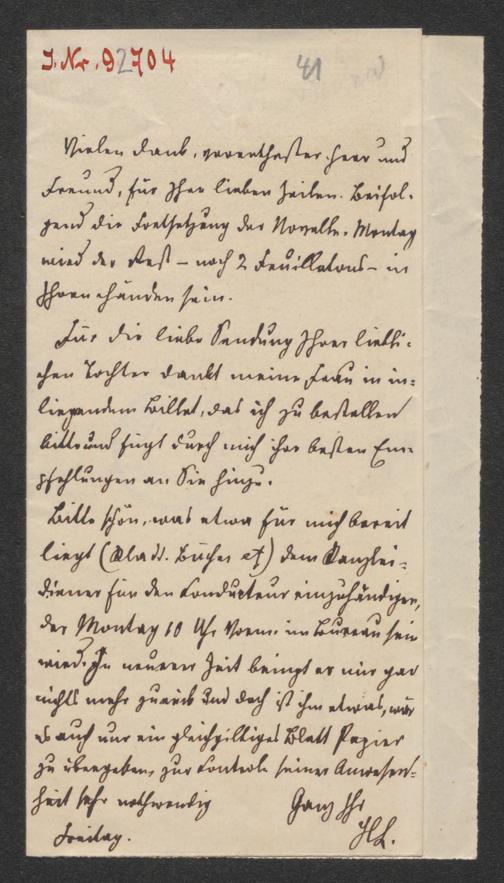 J. Nr. 92704
41
Vielen Dank, verehrtester Herr und
Freund, für Ihre lieben Zeilen. Beifol-
gend die Fortsetzung der Novelle. Montag
wird der Rest – noch 2 Feuilletons – in
Ihren Händen sein.
Für die liebe Sendung Ihrer liebli-
chen Tochter dankt meine Frau in in-
liegendem Billet, das ich zu bestellen
bitte und fügt durch mich ihre besten Em-
pfehlungen an Sie hinzu.
Bitte schön, was etwa für mich bereit
liegt (Bücher) dem Kanzlei-
diener für den Conducteur einzuhändigen,
der Montag 10 Uhr Vorm. im Bureau sein
wird. In neuerer Zeit bringt er mir gar
nichts mehr zurück und doch ist ihm etwas, wär
es auch nur ein gleichgiltiges Blatt Papier
zu übergeben, zur Controle seiner Anwesen-
heit sehr nothwendig
Ganz Ihr
HL.
Freitag.